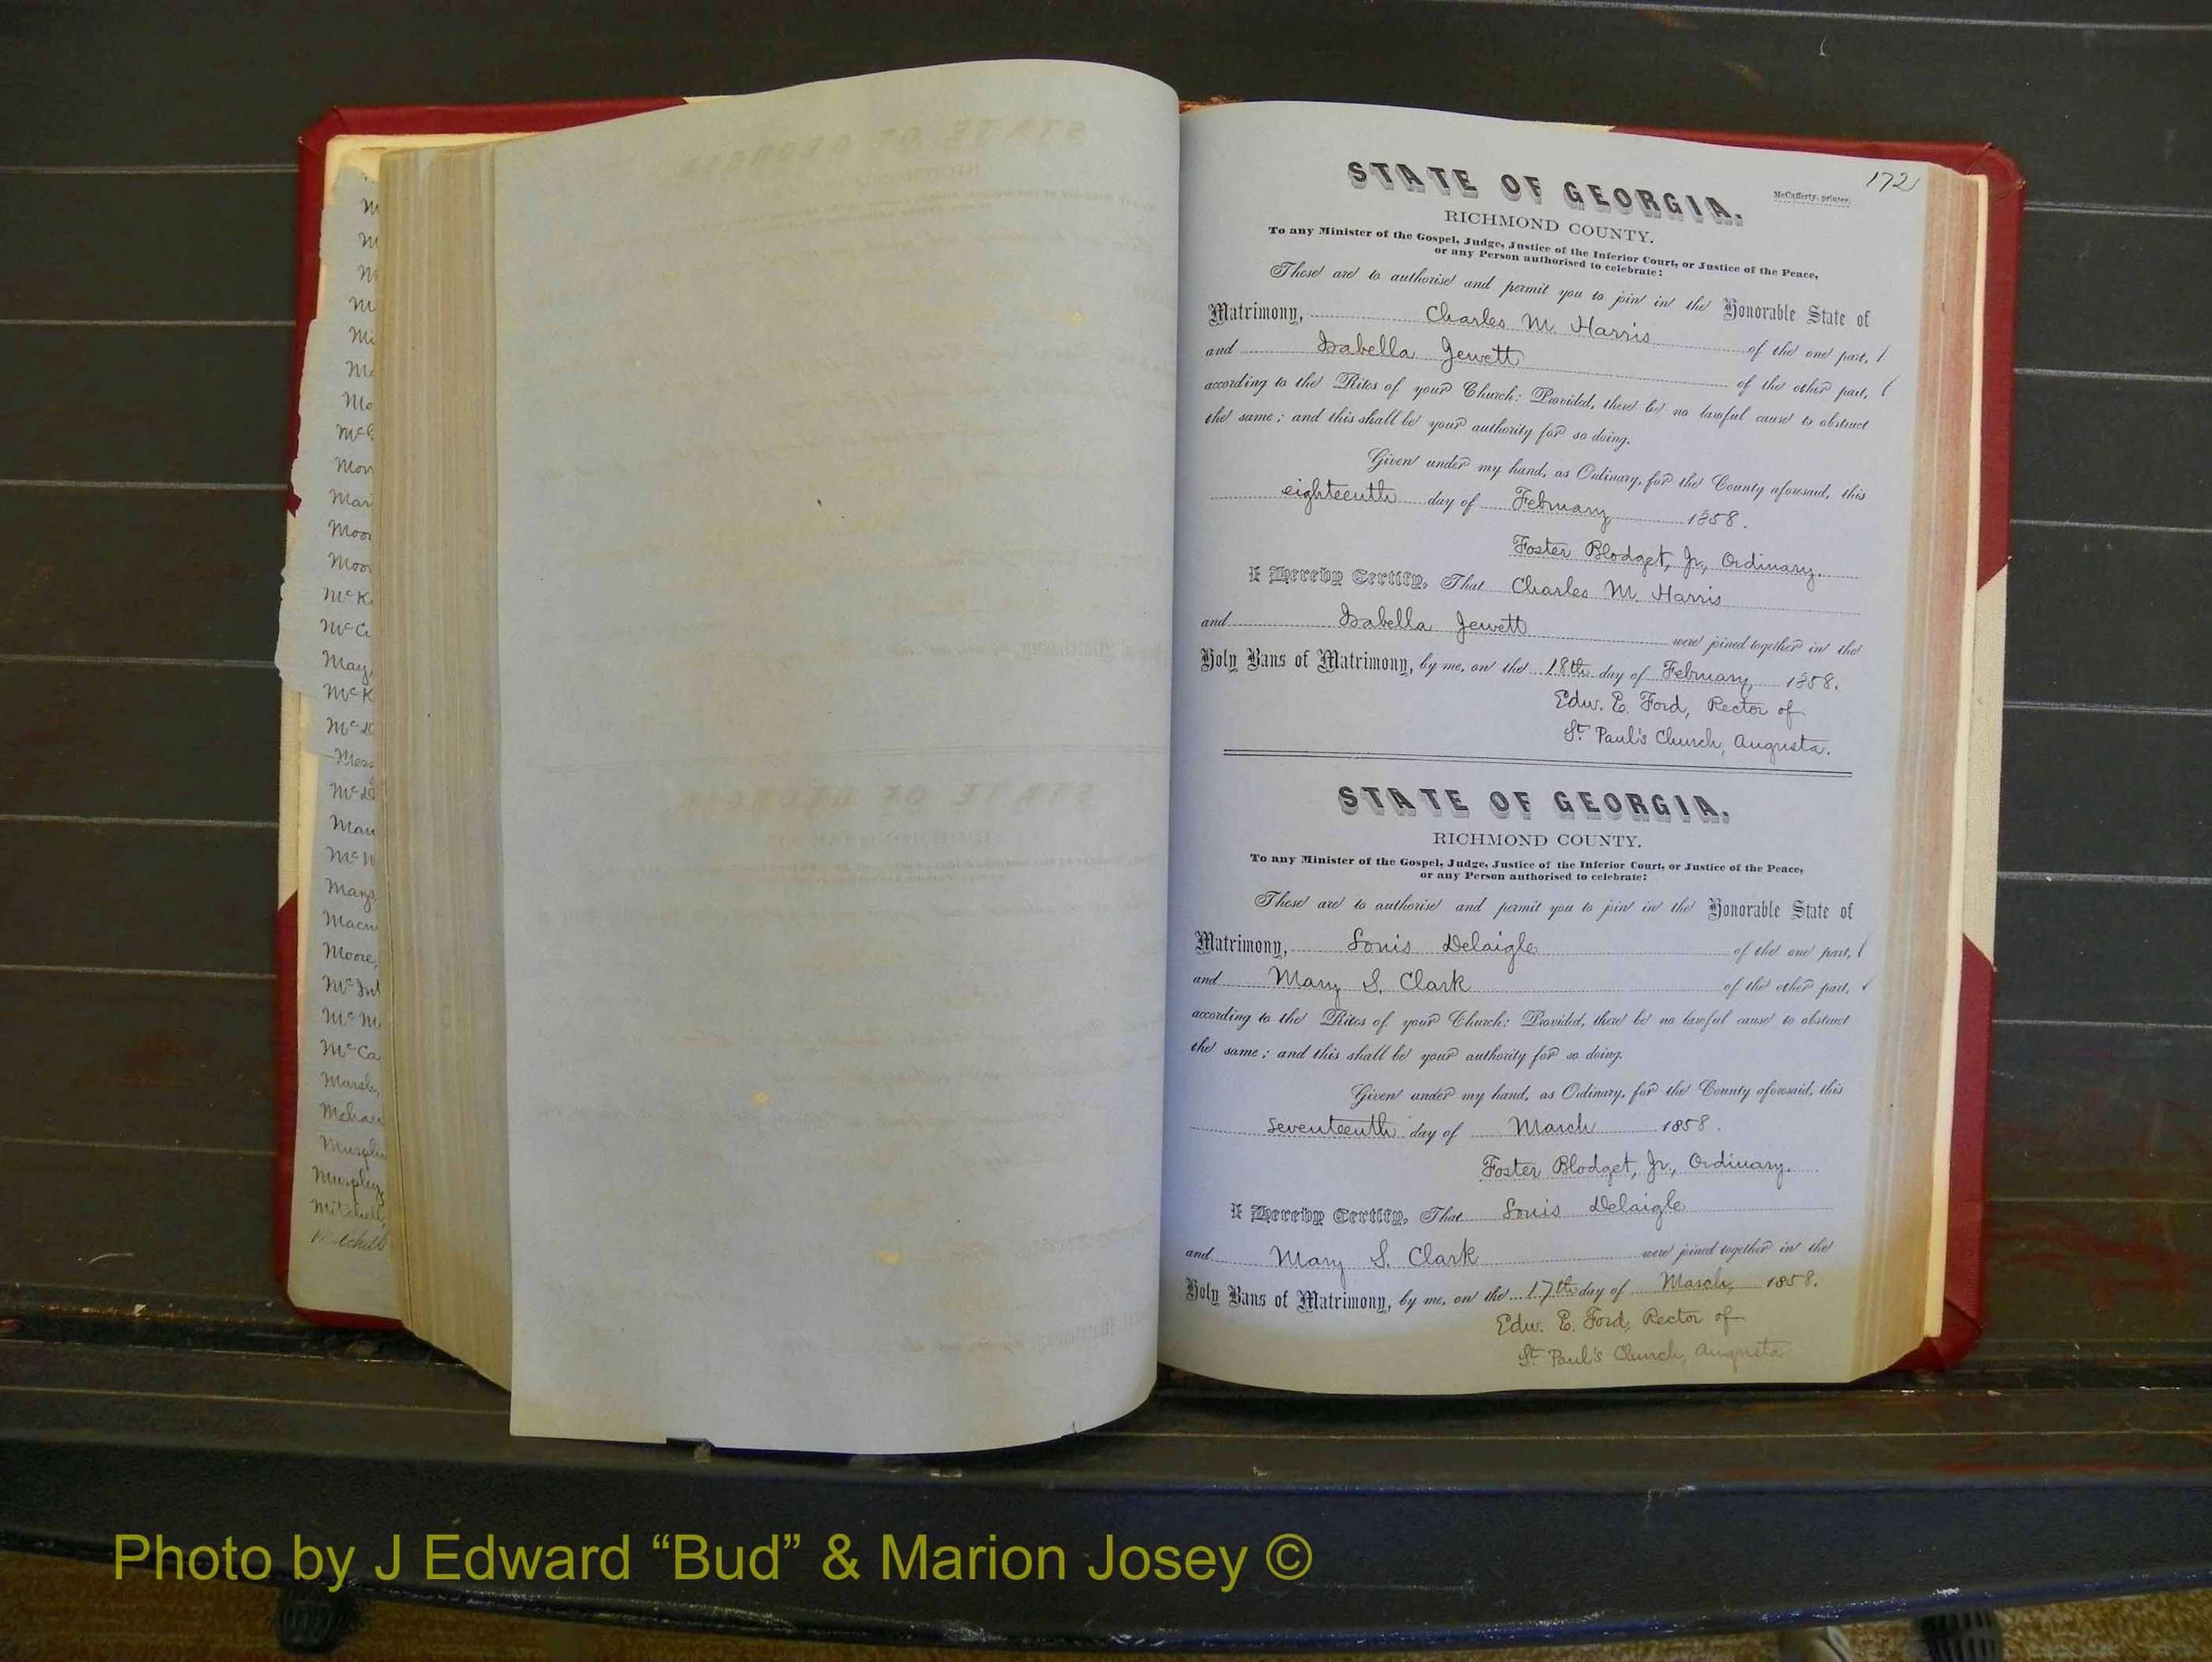 172
STATE OF GEORGIA.
McCafferty, printer.
RICHMOND COUNTY.
To any Minister of the Gospel, Judge, Justice of the Inferior Court, or Justice of the Peace,
or any Person authorised to celebrate:
These are to authorise and permit you to join in the Honorable State of
Matrimony, Charles M. Harris of the one part,
and Isabella Jewett of the other part,
according to the Rites of your Church: Provided, there be no lawful cause to obstruct
the same; and this shall be your authority for so doing.
Given under my hand, as Ordinary, for the County aforesaid, this
eighteenth day of February 1858.
Foster Blodget, Jr., Ordinary.
I Hereby Certify, That Charles M. Harris
and Isabella Jewett were joined together in the
Holy Bans of Matrimony, by me, on the 18th day of February 1858.
Edw. E. Ford, Rector of
St. Paul's Church, Augusta.
STATE OF GEORGIA.
RICHMOND COUNTY.
To any Minister of the Gospel, Judge, Justice of the Inferior Court, or Justice of the Peace,
or any Person authorised to celebrate:
These are to authorise and permit you to join in the Honorable State of
Matrimony, Louis Delaigle of the one part,
and Mary S. Clark of the other part,
according to the Rites of your Church: Provided, there be no lawful cause to obstruct
the same; and this shall be your authority for so doing.
Given under my hand, as Ordinary, for the County aforesaid, this
seventeenth day of March 1858.
Foster Blodget, Jr., Ordinary.
I Hereby Certify, That Louis Delaigle
and Mary S. Clark were joined together in the
Holy Bans of Matrimony, by me, on the 17th day of March, 1858.
Edw. E. Ford, Rector of
St. Paul's Church, Augusta
Photo by J Edward “Bud” & Marion Josey ©